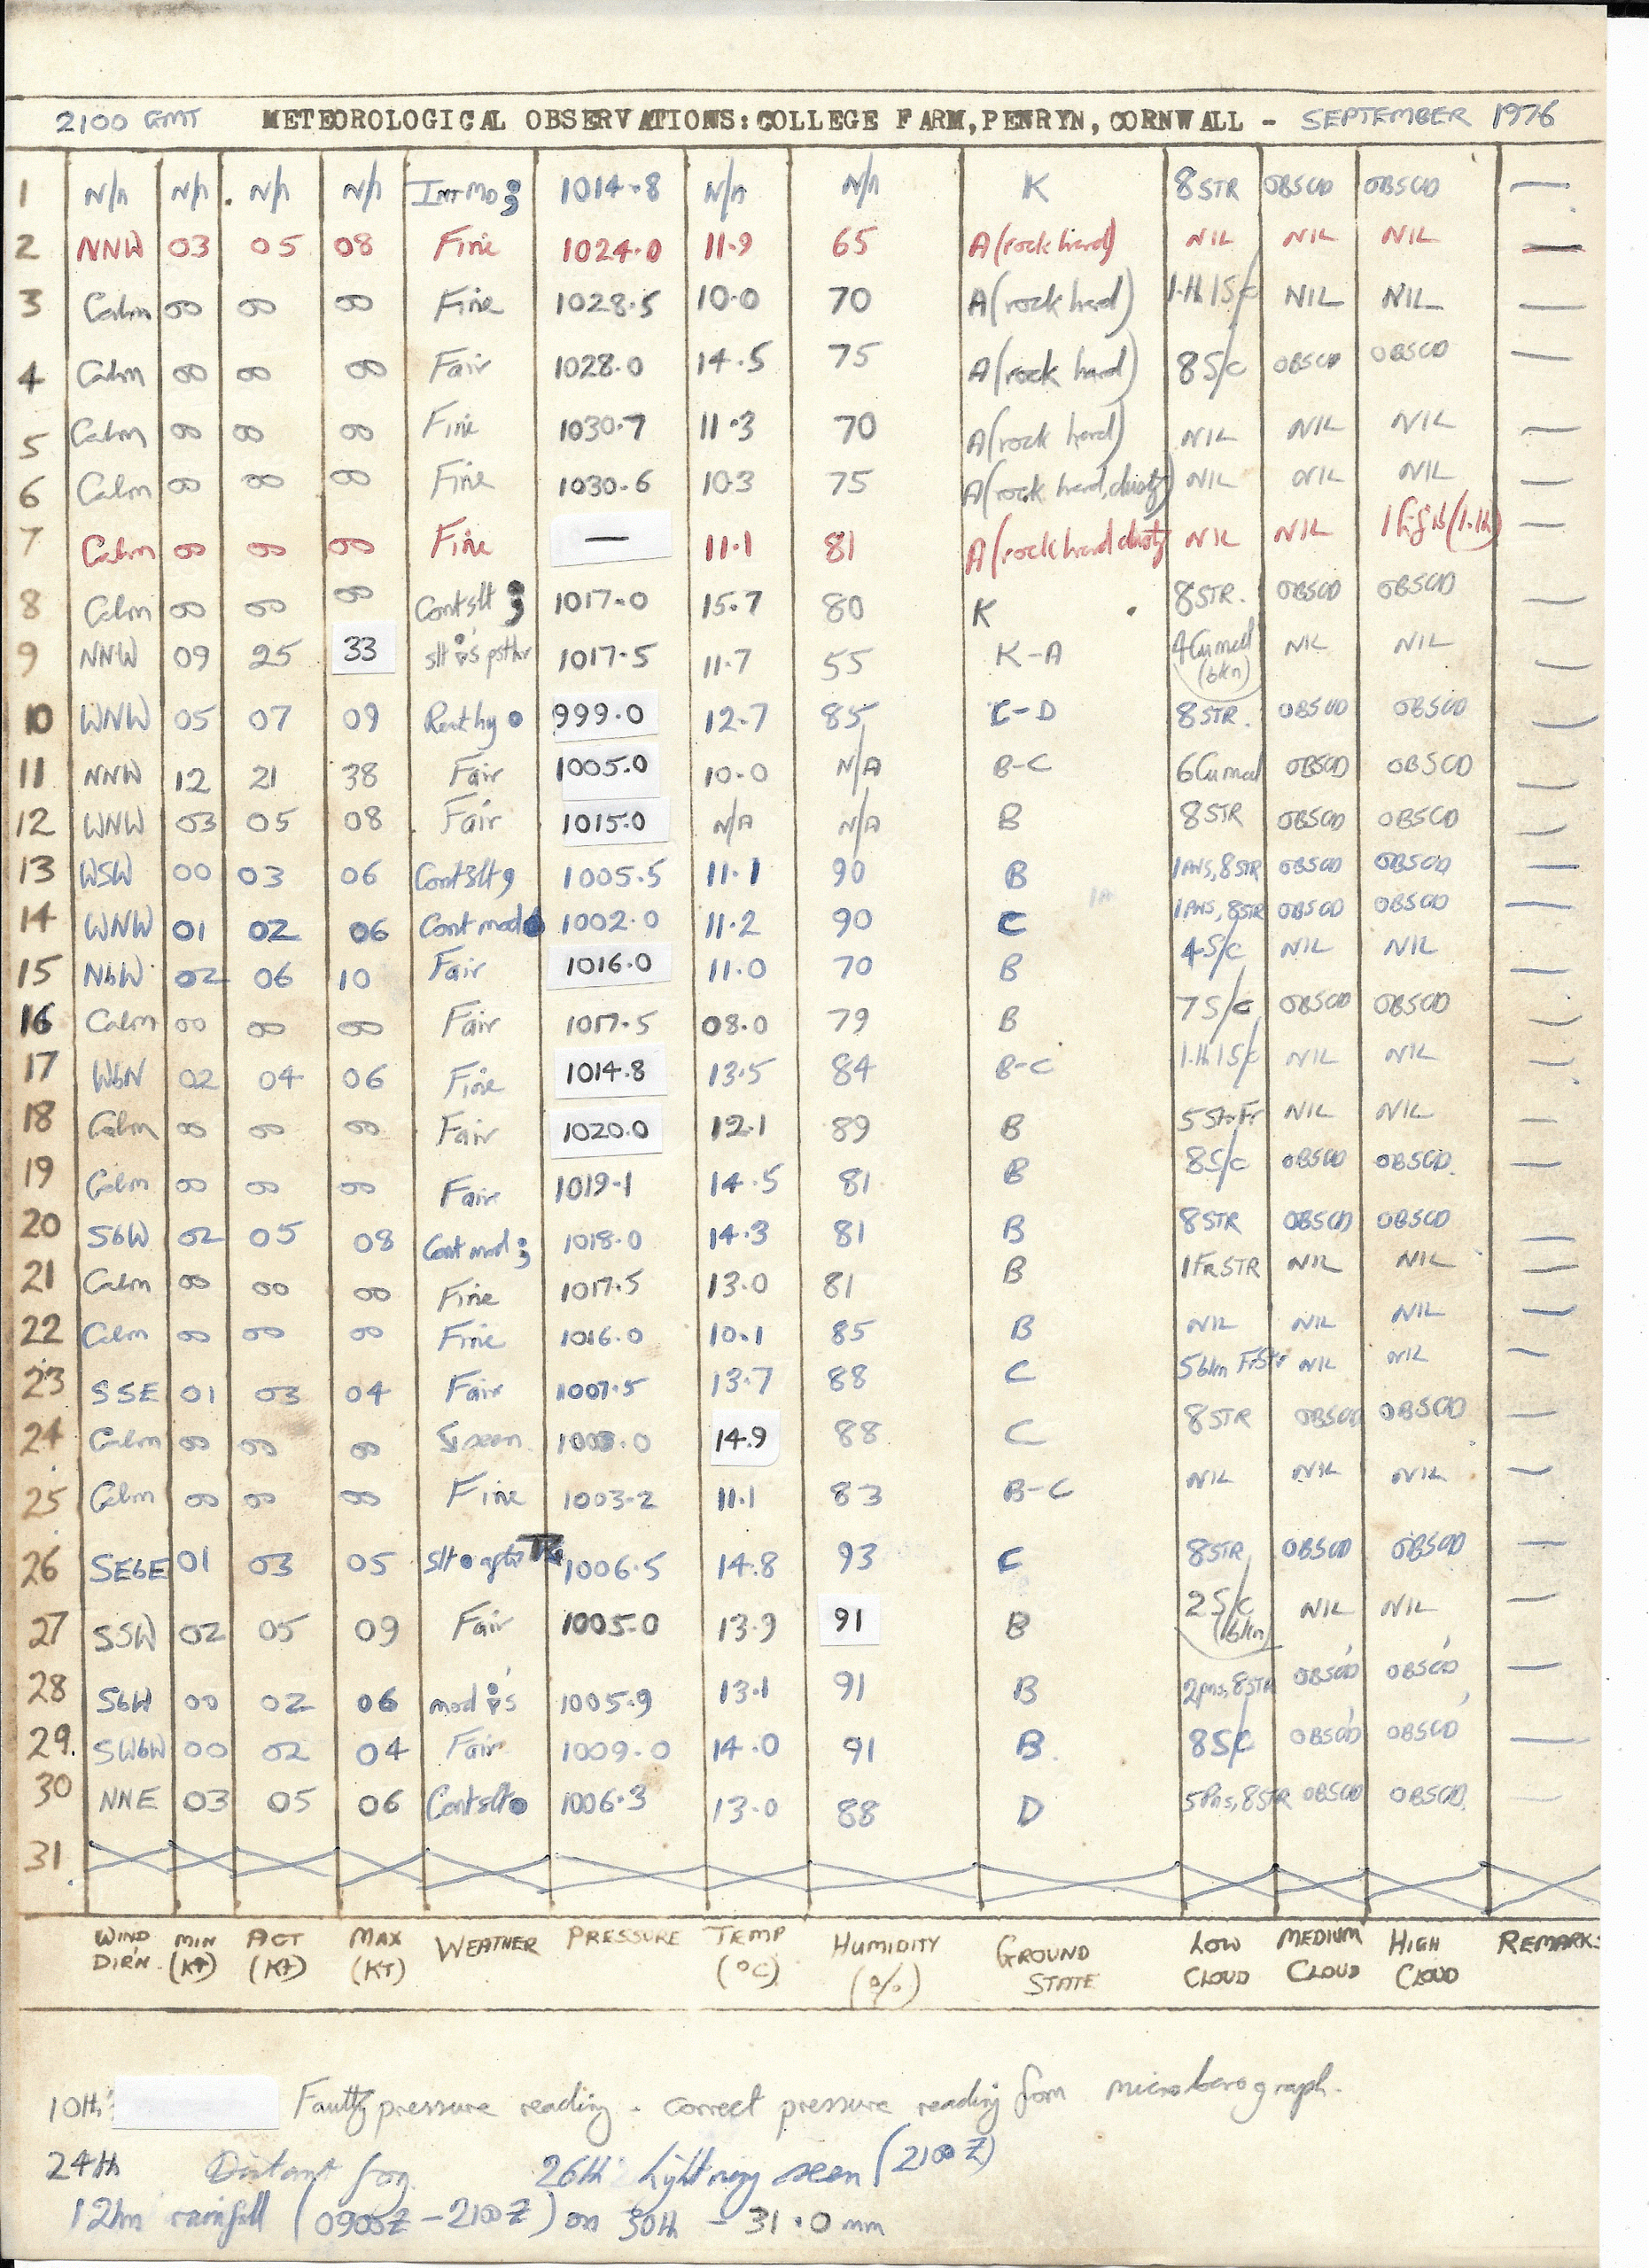 2100 GMT METEOROLOGICAL OBSERVATIONS: COLLEGE FARM, PENRYN, CORNWALL - SEPTEMBER 1976
1 N/A N/A N/A N/A INT MOD 1014.8 N/A N/A K 8 STR OBSCD OBSCD —
2 NNW 03 05 08 Fine 1024.0 11.9 65 A (rock hard) NIL NIL NIL —
3 Calm 00 00 00 Fine 1028.5 10.0 70 A (rock hard) 1 S/C NIL NIL —
4 Calm 00 00 00 Fair 1028.0 14.5 75 A (rock hard) 8 S/C OBSCD OBSCD —
5 Calm 00 00 00 Fine 1030.7 11.3 70 A (rock hard) NIL NIL NIL —
6 Calm 00 00 00 Fine 1030.6 10.3 75 A (rock hard, dusty) NIL NIL NIL —
7 Calm 00 00 00 Fine — 11.1 81 A (rock hard dusty NIL NIL 1 —
8 Calm 00 00 00 Cont slt 1017.0 15.7 80 K 8 STR. OBSCD OBSCD —
9 NNW 09 25 33 slt 1017.5 11.7 55 K-A 4 Cu med (bkn) NIL NIL —
10 WNW 05 07 09 hvy 999.0 12.7 85 C-D 8 STR. OBSCD OBSCD —
11 NNW 12 21 38 Fair 1005.0 10.0 N/A B-C 6 Cu med OBSCD OBSCD —
12 WNW 03 05 08 Fair 1015.0 N/A N/A B 8 STR OBSCD OBSCD —
13 WSW 00 03 06 Cont slt 1005.5 11.1 90 B 1 PNS, 8 STR OBSCD OBSCD —
14 WNW 01 02 06 Cont mod 1002.0 11.2 90 C 1 PNS, 8 STR OBSCD OBSCD —
15 NbW 02 06 10 Fair 1016.0 11.0 70 B 4 S/C NIL NIL —
16 Calm 00 00 00 Fair 1017.5 08.0 79 B 7 S/C OBSCD OBSCD —
17 WbN 02 04 06 Fine 1014.8 13.5 84 B-C 1 S/C NIL NIL —
18 Calm 00 00 00 Fair 1020.0 12.1 89 B 5 St.Fr NIL NIL —
19 Calm 00 00 00 Fair 1019.1 14.5 81 B 8 S/C OBSCD OBSCD. —
20 SbW 02 05 08 Cont mod 1018.0 14.3 81 B 8 STR OBSCD OBSCD —
21 Calm 00 00 00 Fine 1017.5 13.0 81 B 1 FR STR NIL NIL —
22 Calm 00 00 00 Fine 1016.0 10.1 85 B NIL NIL NIL —
23 SSE 01 03 04 Fair 1007.5 13.7 88 C 5 bkn FrStr NIL NIL —
24 Calm 00 00 00 seen 1003.0 14.9 88 C 8 STR OBSCD OBSCD —
25 Calm 00 00 00 Fine 1003.2 11.1 83 B-C NIL NIL NIL —
26 SEbE 01 03 05 slt 1006.5 14.8 93 C 8 STR OBSCD OBSCD —
27 SSW 02 05 09 Fair 1005.0 13.9 91 B 2 S/C (bkn) NIL NIL —
28 SbW 00 02 06 mod 1005.9 13.1 91 B 2 pns, 8 STR OBSCD OBSCD —
29. SWbW 00 02 04 Fair 1009.0 14.0 91 B. 8 S/C OBSCD OBSCD —
30 NNE 03 05 06 Cont slt 1006.3 13.0 88 D 5 Pns, 8 STR OBSCD OBSCD. —
31
WIND DIR'N. MIN (KT) ACT (KT) MAX (KT) WEATHER PRESSURE TEMP (°C) HUMIDITY (%) GROUND STATE LOW CLOUD MEDIUM CLOUD HIGH CLOUD REMARKS
10th: Faulty pressure reading. correct pressure reading from microbarograph.
24th Distant fog. 26th: Lightning seen (2100 Z)
12hr rainfall (0900Z - 2100Z) on 30th - 31.0 mm